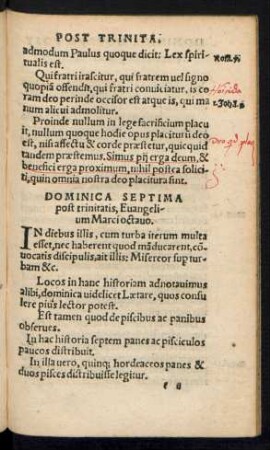 POST TRINITA.
admodum Paulus quoque dicit: Lex spiri-
tualis est.
Rom. 7.
Qui fratri irascitur, qui fratrem uel signo
quopiã offendit, qui fratri conuiciatur, is co
ram deo perinde occisor est atque is, qui ma
num alicui admolitur.
1. Joh. 3.
Proinde nullum in lege sacrificium placu
it, nullum quoque hodie opus placiturũ deo
est, nisi affectu & corde præstetur, quicquid
tandem præstemus. Simus pij erga deum, &
benefici erga proximum, nihil postea solici-
ti, quin omnia nostra deo placitura sint.
DOMINICA SEPTIMA
post trinitatis, Euangeli-
um Marci octauo.
IN diebus illis, cum turba iterum multa
esset, nec haberent quod mãducarent, cõ-
uocatis discipulis, ait illis: Misereor sup tur
bam &c.
Locos in hanc historiam adnotauimus
alibi, dominica uidelicet Lætare, quos consu
lere pius lector potest.
Est tamen quod de piscibus ac panibus
obserues.
In hac historia septem panes ac pisciculos
paucos distribuit.
In illa uero, quinq; hordeaceos panes &
duos pisces distribuisse legitur.